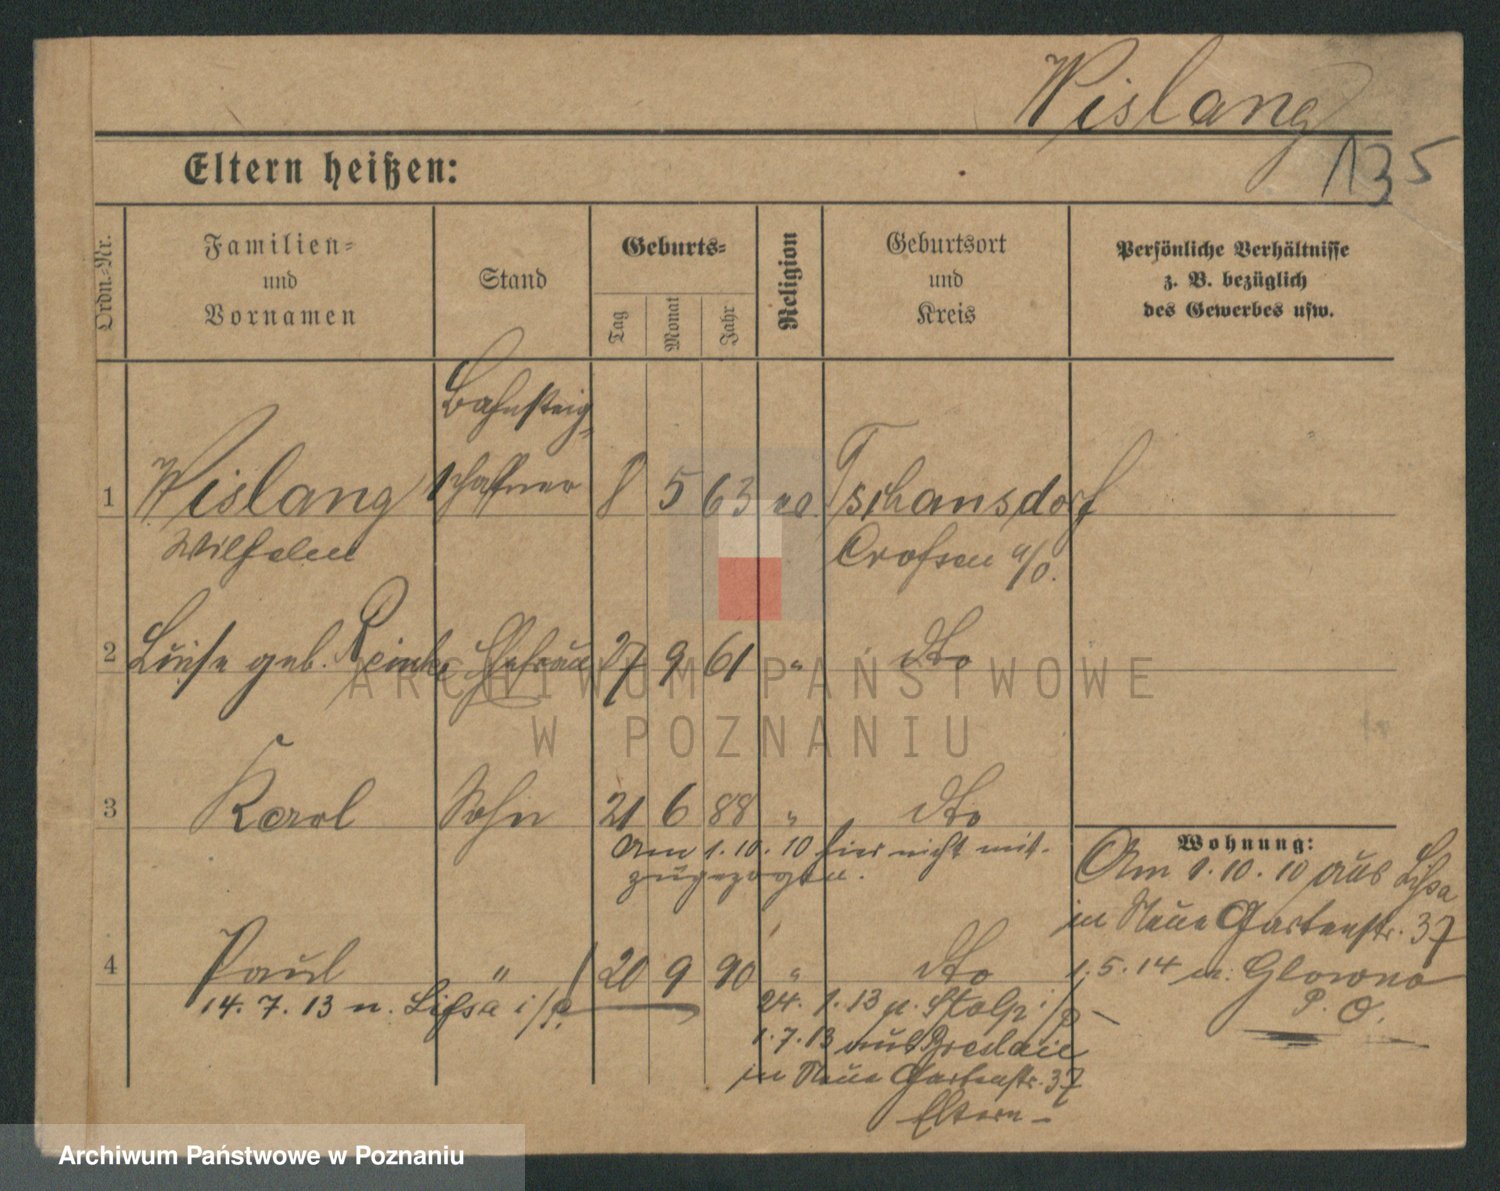 Wislang
135
Eltern heißen:
Ordn.-Nr.
Familien-
und
Vornamen
Stand
Geburts-
Tag
Monat
Jahr
Religion
Geburtsort
und
Kreis
Persönliche Verhältnisse
z. B. bezüglich
des Gewerbes usw.
Bahnsteig-
1 Wislang schaffner 8 5 63 ev. Tschansdorf
Wilhelm Crossen a/O.
2 Luise geb. Reinke Ehefrau 27 9 61 " dto
3 Karl Sohn 21 6 88 " dto
Am 1.10.10 hier nicht mit-
zugezogen.
Wohnung:
Am 1.10.10 aus Lissa
in Neue Gartenstr. 37
1.5.14 n. Glowno
P. O.
4 Paul " 20 9 90 " dto
14.7.13 n. Lissa i/P.
24.1.13 n. Stolp i/P
1.7.13 aus Breslau
in Neue Gartenstr. 37
Eltern -
ARCHIWUM PAŃSTWOWE
W POZNANIU
Archiwum Państwowe w Poznaniu